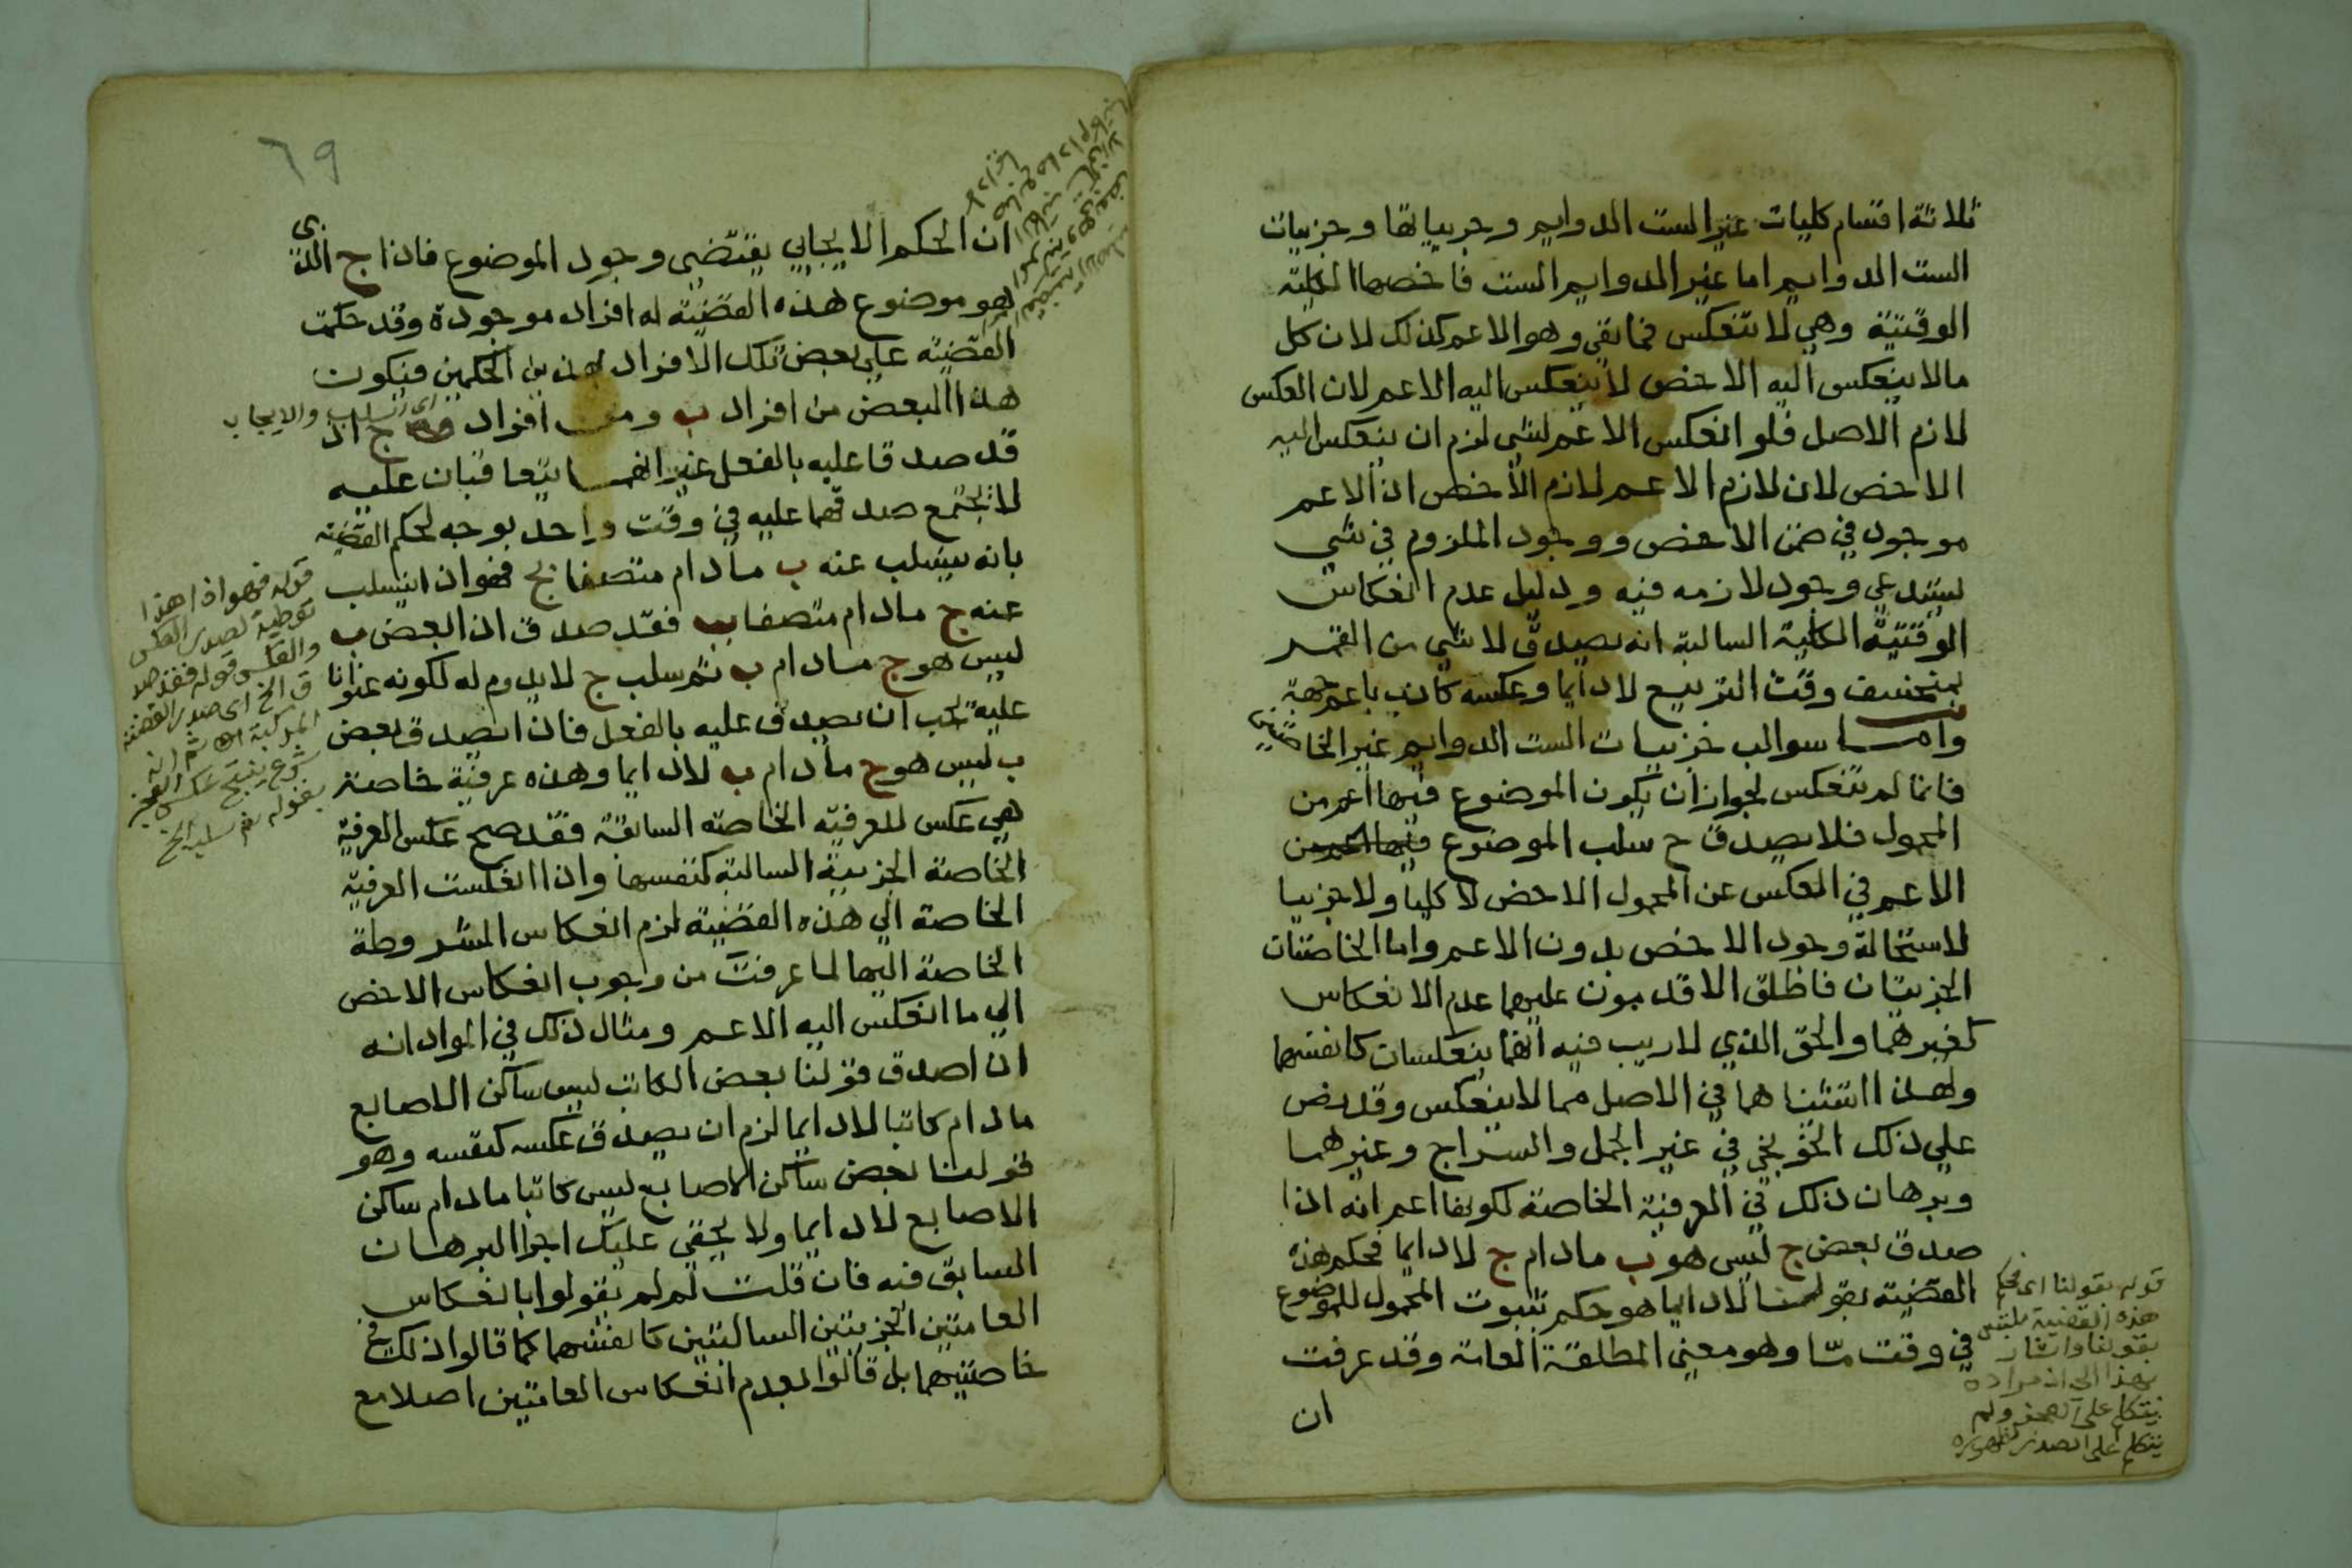 ثلاثة اقسام كليات غير الست الدوايم وجزيياتها وجزييات
الست الدوايم اما غير الدوايم الست فاخصها الكلية
الوقتية وهي لا تنعكس فما بقي وهو الاعم كذلك لان كل
مالا ينعكس اليه الاخص لا ينعكس اليه الاعم لان العكس
لازم الاصل فلو انعكس الاعم لشي لزم ان ينعكس اليه
الاخص لان لازم الاعم لازم الاخص اذ الاعم
موجود في ضمن الاخص ووجود الملزوم في شي
يستدعي وجود لازمه فيه ودليل عدم انعكاس
الوقتية الكلية السالبة انه يصدق لا شي من القمر
بمنخسف وقت التربيع لا دايما وعكسه كاذب باعم جهة
واما سوالب جزييات الست الدوايم غير الخاصتين
فانما لم تنعكس لجواز ان يكون الموضوع فيها اعم من
المحمول فلا يصدق ح سلب الموضوع فيها اعم من
الاعم في العكس عن المحمول الاخص لا كليا ولا جزييا
لاستحالة وجود الاخص بدون الاعم واما الخاصتان
الجزيتان فاطلق الاقدمون عليهما عدم الانعكاس
كغيرهما والحق الذي لا ريب فيه انهما ينعكسان كانفسهما
ولهذا استثناهما في الاصل مما لا ينعكس وقد نص
علي ذلك الخونجي في غير الجمل والسراج وغيرهما
وبرهان ذلك في العرفية الخاصة لكونها اعم انه اذا
صدق بعض ج ليس هو ب مادام ج لا دايما فحكم هذه
القضية بقولنا لا دايما هو حكم بثبوت المحمول للموضوع
في وقت ما وهو معني المطلقة العامة وقد عرفت
ان
قوله بقولنا اي فحكم
هذه القضية ملتبس
بقولنا واشار
بهذا الي ان مراده
يتكلم علي العجز ولم
يتكلم علي الصدر لظهوره
٦٩
ان الحكم الايجابي يقتضي وجود الموضوع فاذا ج الذي
هو موضوع هذه القضية له افراد موجودة وقد حكمت
القضية علي بعض تلك الافراد بهذين الحكمين فيكون
اي السلب والايجاب
هذا البعض من افراد ب ومن افراد ج اذ
قد صدقا عليه بالفعل غير انهما يتعاقبان عليه
لا يجتمع صدقهما عليه في وقت واحد بوجه لحكم القضية
بانه ينسلب عنه ب مادام متصفا بج فهو اذا ينسلب
عنه ج مادام متصفا بب فقد صدق ان البعض ب
ليس هو ج مادام ب ثم سلب ج لا يدوم له لكونه عنوانا
عليه يجب ان يصدق عليه بالفعل فاذا يصدق بعض
ب ليس هو ج مادام ب لا دايما وهذه عرفية خاصة
هي عكس للعرفية الخاصة السابقة فقد صح عكس العرفية
الخاصة الجزيية السالبة كنفسها واذا انعكست العرفية
الخاصة الي هذه القضية لزم انعكاس المشروطة
الخاصة اليها لما عرفت من وجوب انعكاس الاخص
الي ما انعكس اليه الاعم ومثال ذلك في المواد انه
اذا صدق قولنا بعض الكاتب ليس ساكن الاصابع
مادام كاتبا لا دايما لزم ان يصدق عكسه كنفسه وهو
قولنا بعض ساكن الاصابع ليس كاتبا مادام ساكن
الاصابع لا دايما ولا يخفي عليك اجرا البرهان
السابق فيه فان قلت لم لم يقولوا بانعكاس
العامتين الجزيتين السالبتين كانفسهما كما قالوا ذلك في
خاصتيهما بل قالوا بعدم انعكاس العامتين اصلا مع
قوله فهو اذا هذا
توطية لصدر العكس
والعكس قوله فقد صد
ق الخ اي صدر القضية
المركبة ثم انه
شرع ينتج عكس العجز
بقوله ثم سلب الخ